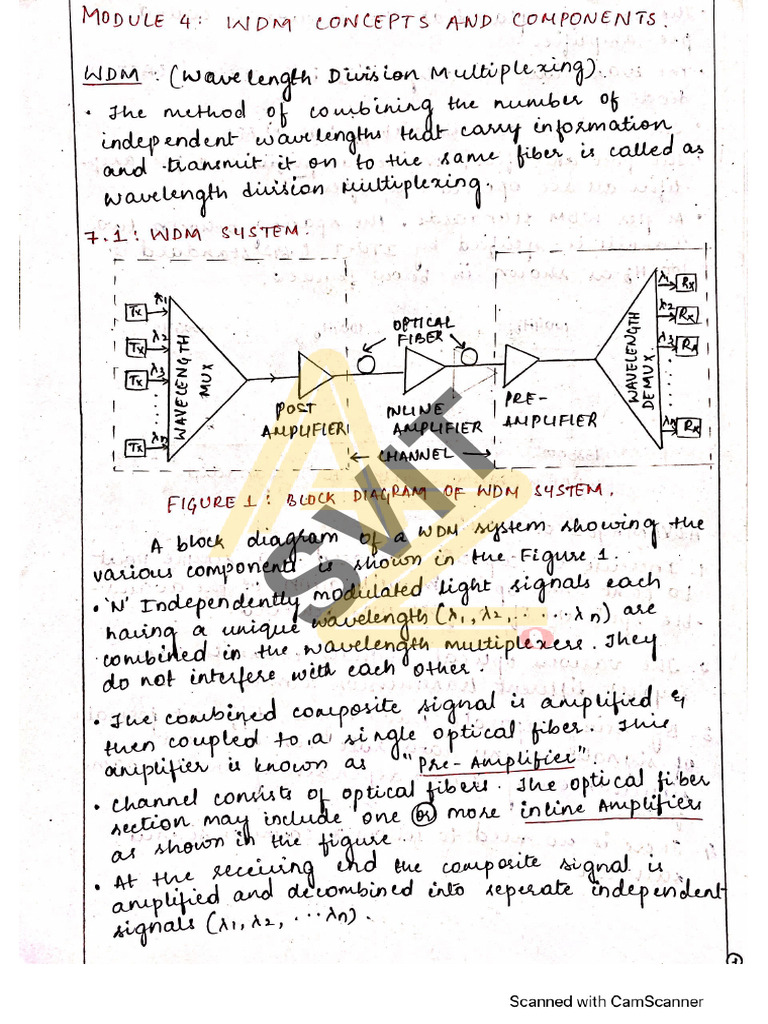 MODULE 4: WDM CONCEPTS AND COMPONENTS.
WDM : (Wavelength Division Multiplexing)
• The method of combining the number of
independent wavelengths that carry information
and transmit it on to the same fiber is called as
wavelength division Multiplexing.
7.1: WDM SYSTEM.
Tx λ1
Tx λ2
Tx λ3
Tx λn
WAVELENGTH MUX
POST
AMPLIFIER
OPTICAL
FIBER
INLINE
AMPLIFIER
PRE-
AMPLIFIER
← CHANNEL →
WAVELENGTH
DEMUX
λ1 Rx
λ2 Rx
λ3 Rx
λn Rx
FIGURE 1: BLOCK DIAGRAM OF WDM SYSTEM.
A block diagram of a WDM system showing the
various components is shown in the Figure 1.
• 'N' Independently modulated light signals each
having a unique wavelength (λ1, λ2, ..... λn) are
combined in the wavelength multiplexers. They
do not interfere with each other.
• The combined composite signal is amplified &
then coupled to a single optical fiber. This
amplifier is known as "Pre-Amplifier".
• Channel consists of optical fibers. The optical fiber
section may include one or more inline Amplifiers
as shown in the figure.
• At the receiving end the composite signal is
amplified and decombined into seperate independent
signals (λ1, λ2, ...λn).
SVIT
1
Scanned with CamScanner